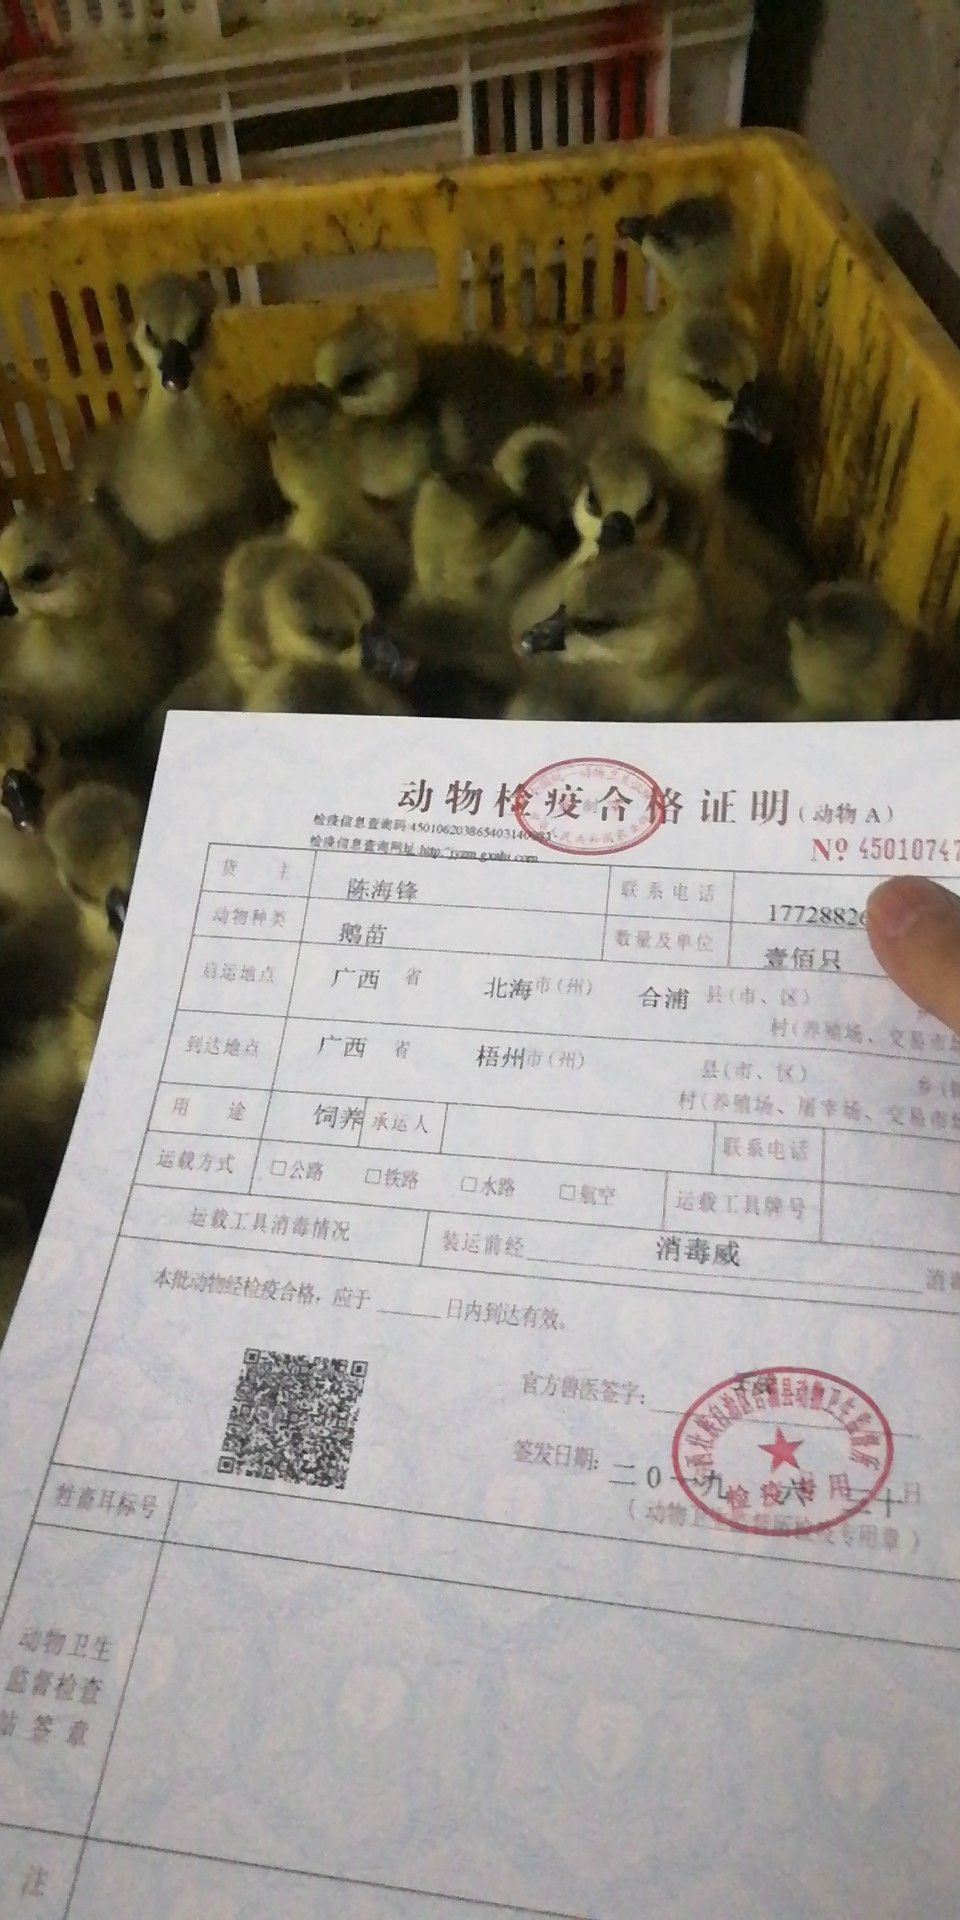 动物检疫合格证明(动物 A)
检疫信息查询码
检疫信息查询网址
№ 45010747
货 主 陈海锋 联系电话 17728826
动物种类 鹅苗 数量及单位 壹佰只
启运地点 广西 省 北海市(州) 合浦 县(市、区)
村(养殖场、交易市场
到达地点 广西 省 梧州市(州) 县(市、区) 乡(镇
村(养殖场、屠宰场、交易市场
用 途 饲养 承运人 联系电话
运载方式 □公路 □铁路 □水路 □航空 运载工具牌号
运载工具消毒情况 装运前经 消毒威 消毒
本批动物经检疫合格，应于 日内到达有效。
官方兽医签字:
签发日期: 二0一九 六 三十日
(动物卫生监督所检疫专用章)
广西壮族自治区合浦县动物卫生监督所
检疫专用
牲畜耳标号
动物卫生
监督检查
站签章
注